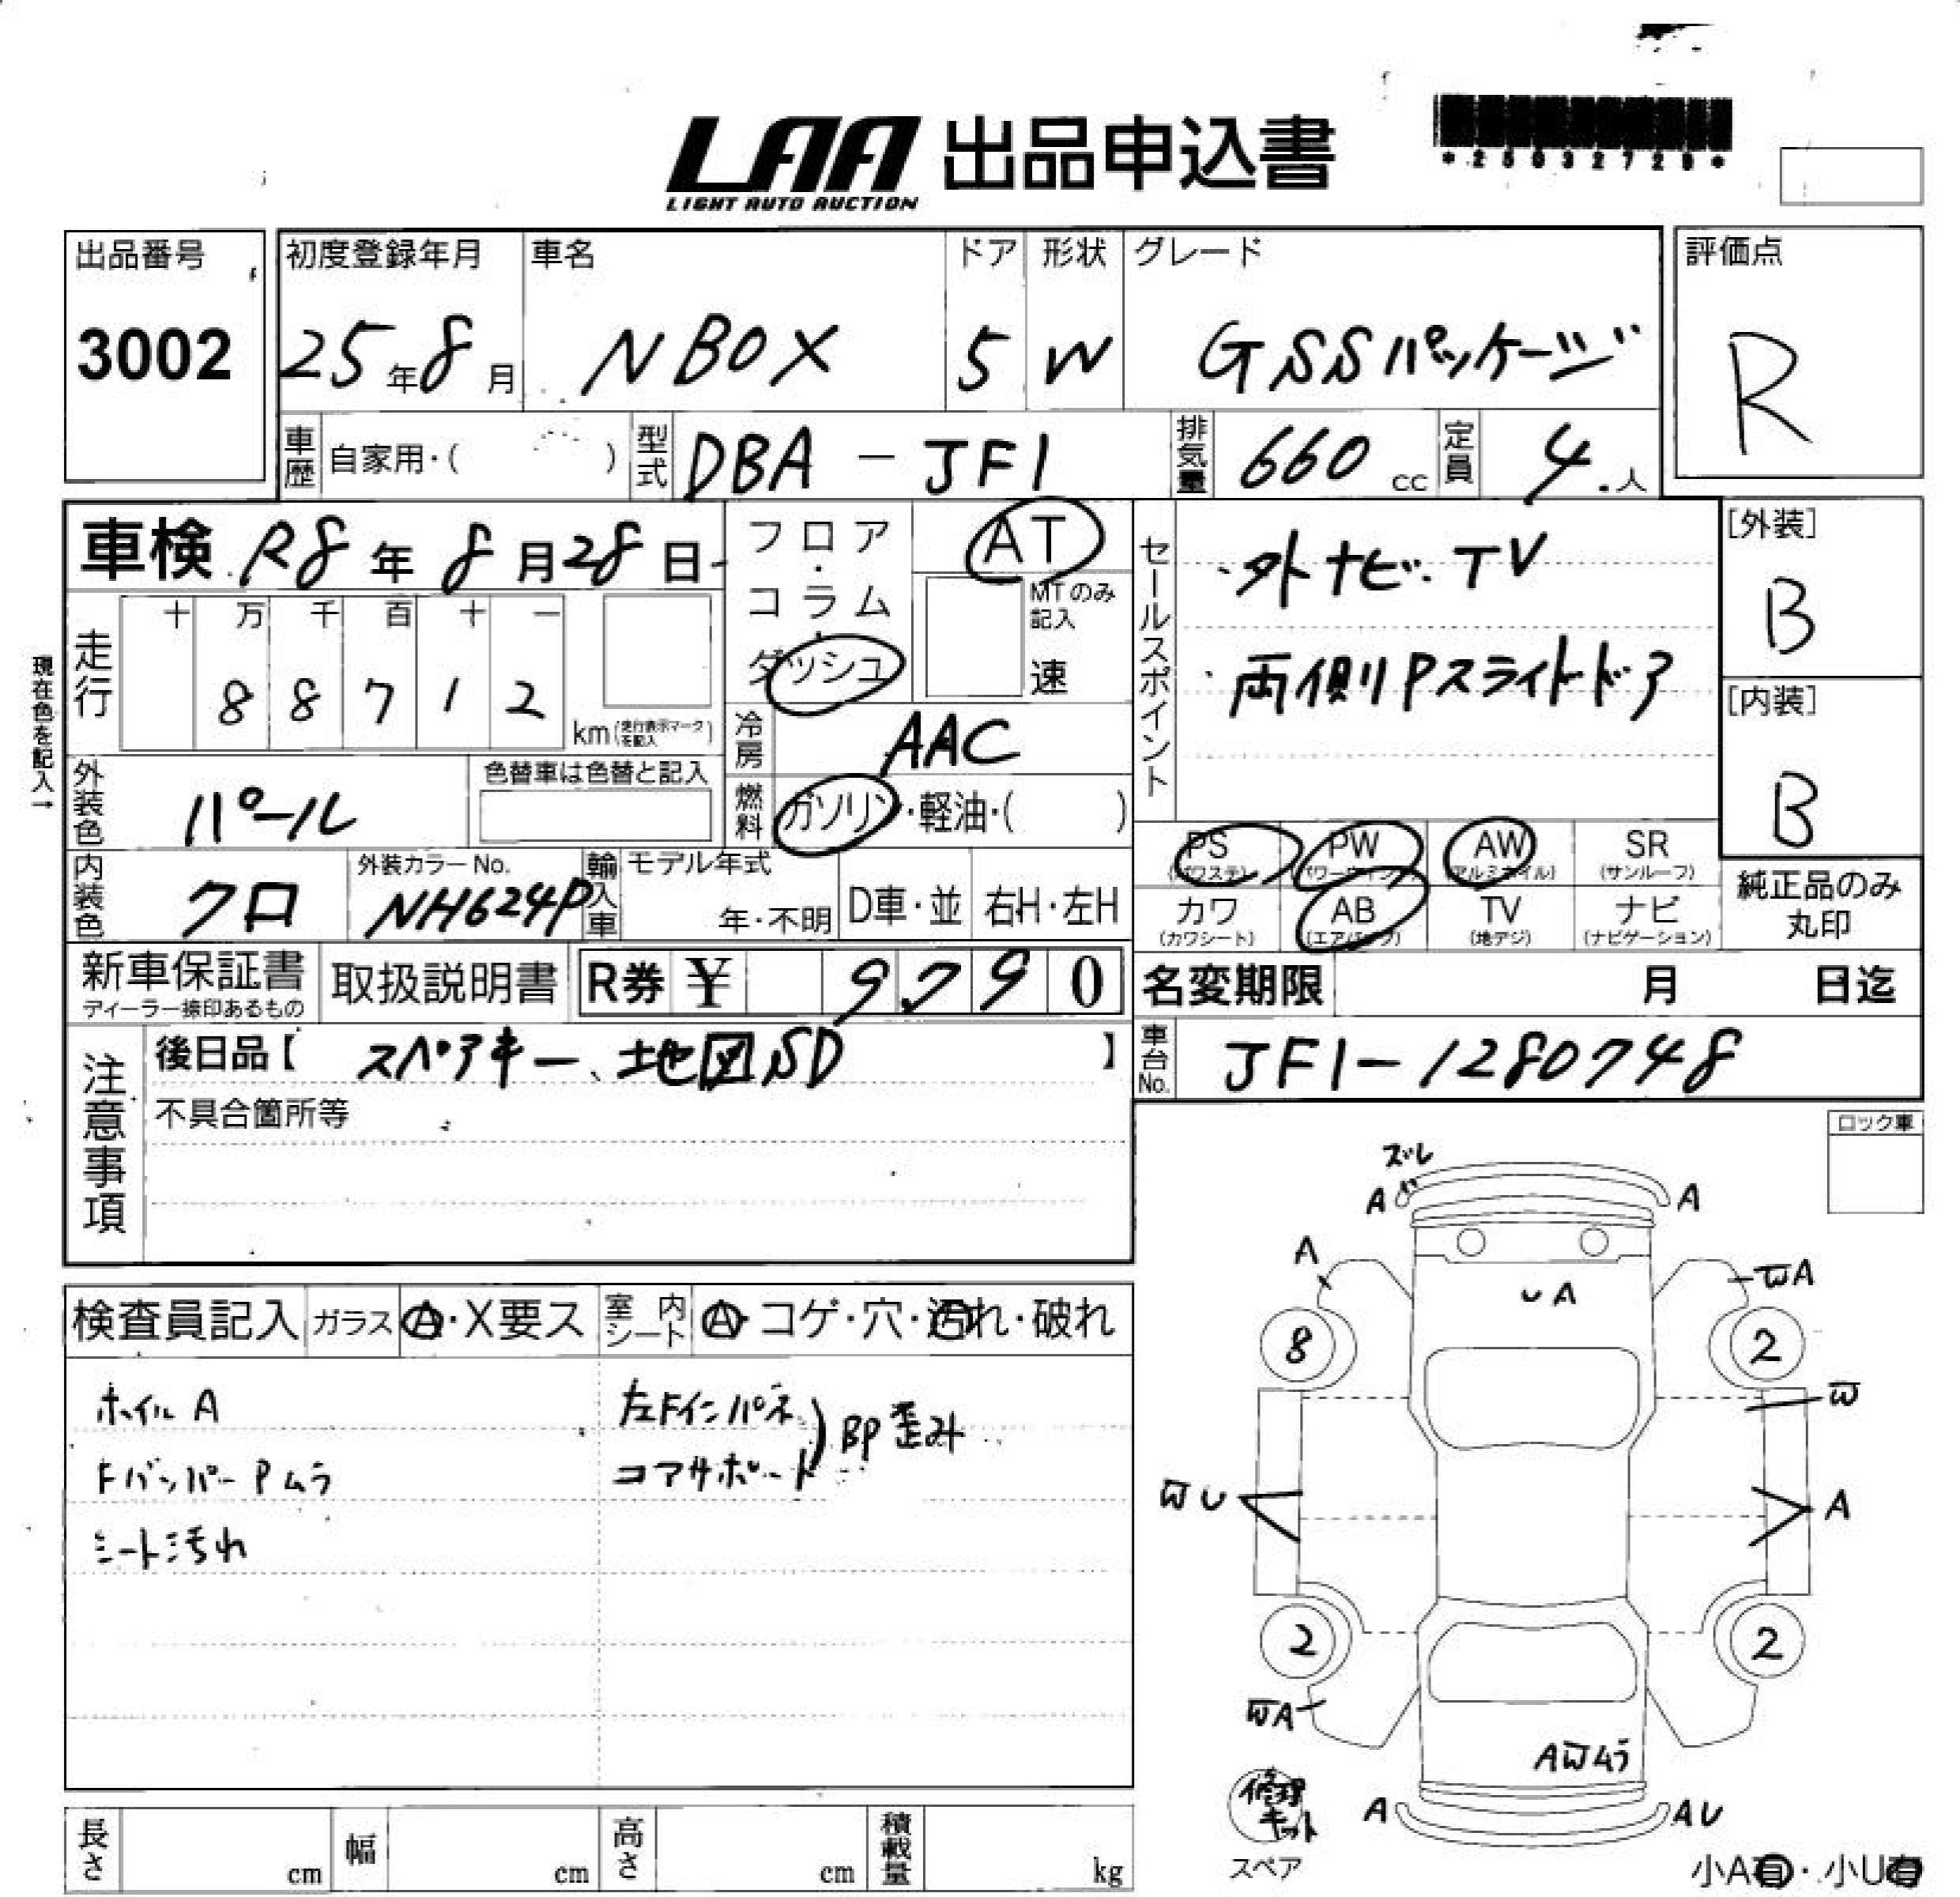 LAA 出品申込書
LIGHT AUTO AUCTION
*25032729*
出品番号
3002
初度登録年月
25年8月
車名
NBOX
ドア
5
形状
W
グレード
GSSパッケージ
評価点
R
車歴 自家用・( )
型式 DBA-JF1
排気量 660cc
定員 4.人
車検 R8年8月28日
フロア・コラム・ダッシュ
AT
MTのみ記入
速
セールスポイント
・外ナビ.TV
・両側Pスライドドア
[外装]
B
[内装]
B
現在色を記入→
走行
十万千百十一
88712
km(走行表示マークを記入)
冷房 AAC
外装色 パール
色替車は色替と記入
燃料 ガソリン・軽油・( )
PS (パワステ)
PW (パワーウィンド)
AW (アルミホイル)
SR (サンルーフ)
カワ (カワシート)
AB (エアバック)
TV (地デジ)
ナビ (ナビゲーション)
純正品のみ丸印
内装色 クロ
外装カラーNo.
NH624P
輸入車
モデル年式
年・不明
D車・並
右H・左H
新車保証書
ディーラー捺印あるもの
取扱説明書
R券 ¥ 9,790
名変期限 月 日迄
注意事項
後日品【 スペアキー、地図SD 】
不具合箇所等
車台No. JF1-1280748
ロック車
検査員記入
ガラス A・X要ス
室内シート A・コゲ・穴・汚れ・破れ
ホイルA
FバンパーPムラ
シート汚れ
左Fインパネ
コアサポート
BP歪み
ズレ
A
A
A
WA
UA
8
2
W
WU
A
2
2
WA
AWムラ
修理キット
スペア
A
AU
小A有・小U有
長さ cm
幅 cm
高さ cm
積載量 kg